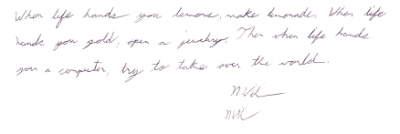 When life hands you lemons, make lemonade. When life
hands you gold, open a jewelry. Then when life hands
you a computer, try to take over the world.